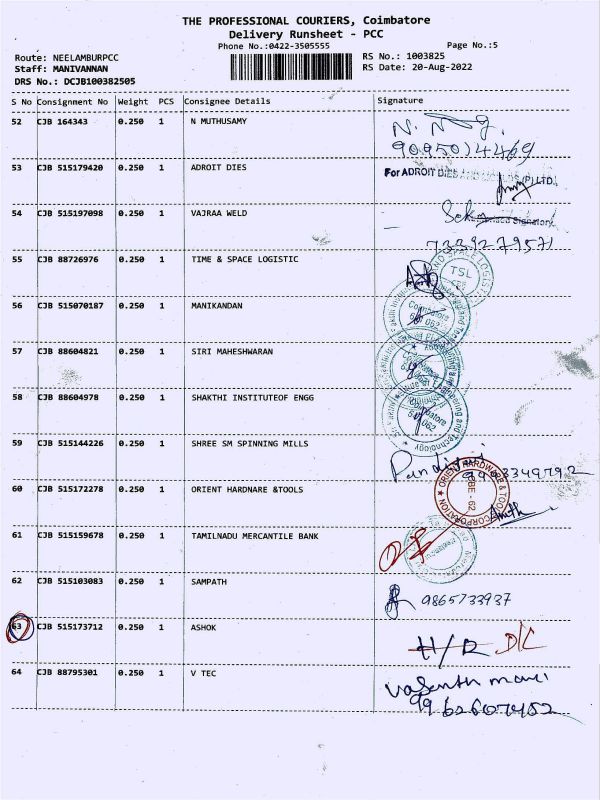 THE PROFESSIONAL COURIERS, Coimbatore
Delivery Runsheet - PCC
Phone No.:0422-3505555
Page No.:5
Route: NEELAMBURPCC
RS No.: 1003825
Staff: MANIVANNAN
RS Date: 20-Aug-2022
DRS No.: DCJB100382505
S No Consignment No Weight PCS Consignee Details Signature
52 CJB 164343 0.250 1 N MUTHUSAMY
9095014469
53 CJB 515179420 0.250 1 ADROIT DIES For ADROIT DIES AND MOULDS (P) LTD.
54 CJB 515197098 0.250 1 VAJRAA WELD
7339279571
55 CJB 88726976 0.250 1 TIME & SPACE LOGISTIC TSL
56 CJB 515070187 0.250 1 MANIKANDAN Coimbatore
57 CJB 88604821 0.250 1 SIRI MAHESHWARAN
58 CJB 88604978 0.250 1 SHAKTHI INSTITUTEOF ENGG Coimbatore
59 CJB 515144226 0.250 1 SHREE SM SPINNING MILLS
60 CJB 515172278 0.250 1 ORIENT HARDNARE &TOOLS ORIENT HARDWARE & TOOLS CORPORATION CBE - 62
61 CJB 515159678 0.250 1 TAMILNADU MERCANTILE BANK
62 CJB 515103083 0.250 1 SAMPATH 9865733937
63 CJB 515173712 0.250 1 ASHOK H/R D/C
64 CJB 88795301 0.250 1 V TEC
9962607452